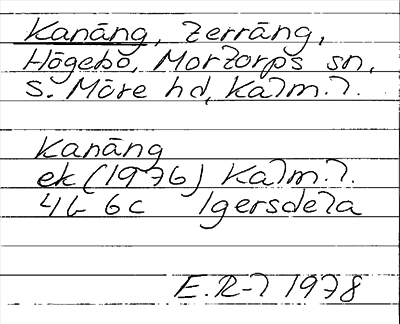 Kanäng, Terräng,
Högebo, Mortorps sn,
S. Möre hd, Kalm. l.
Kanäng
ek (1976) Kalm. l.
4G 6c Igersdela
E. R-l 1978